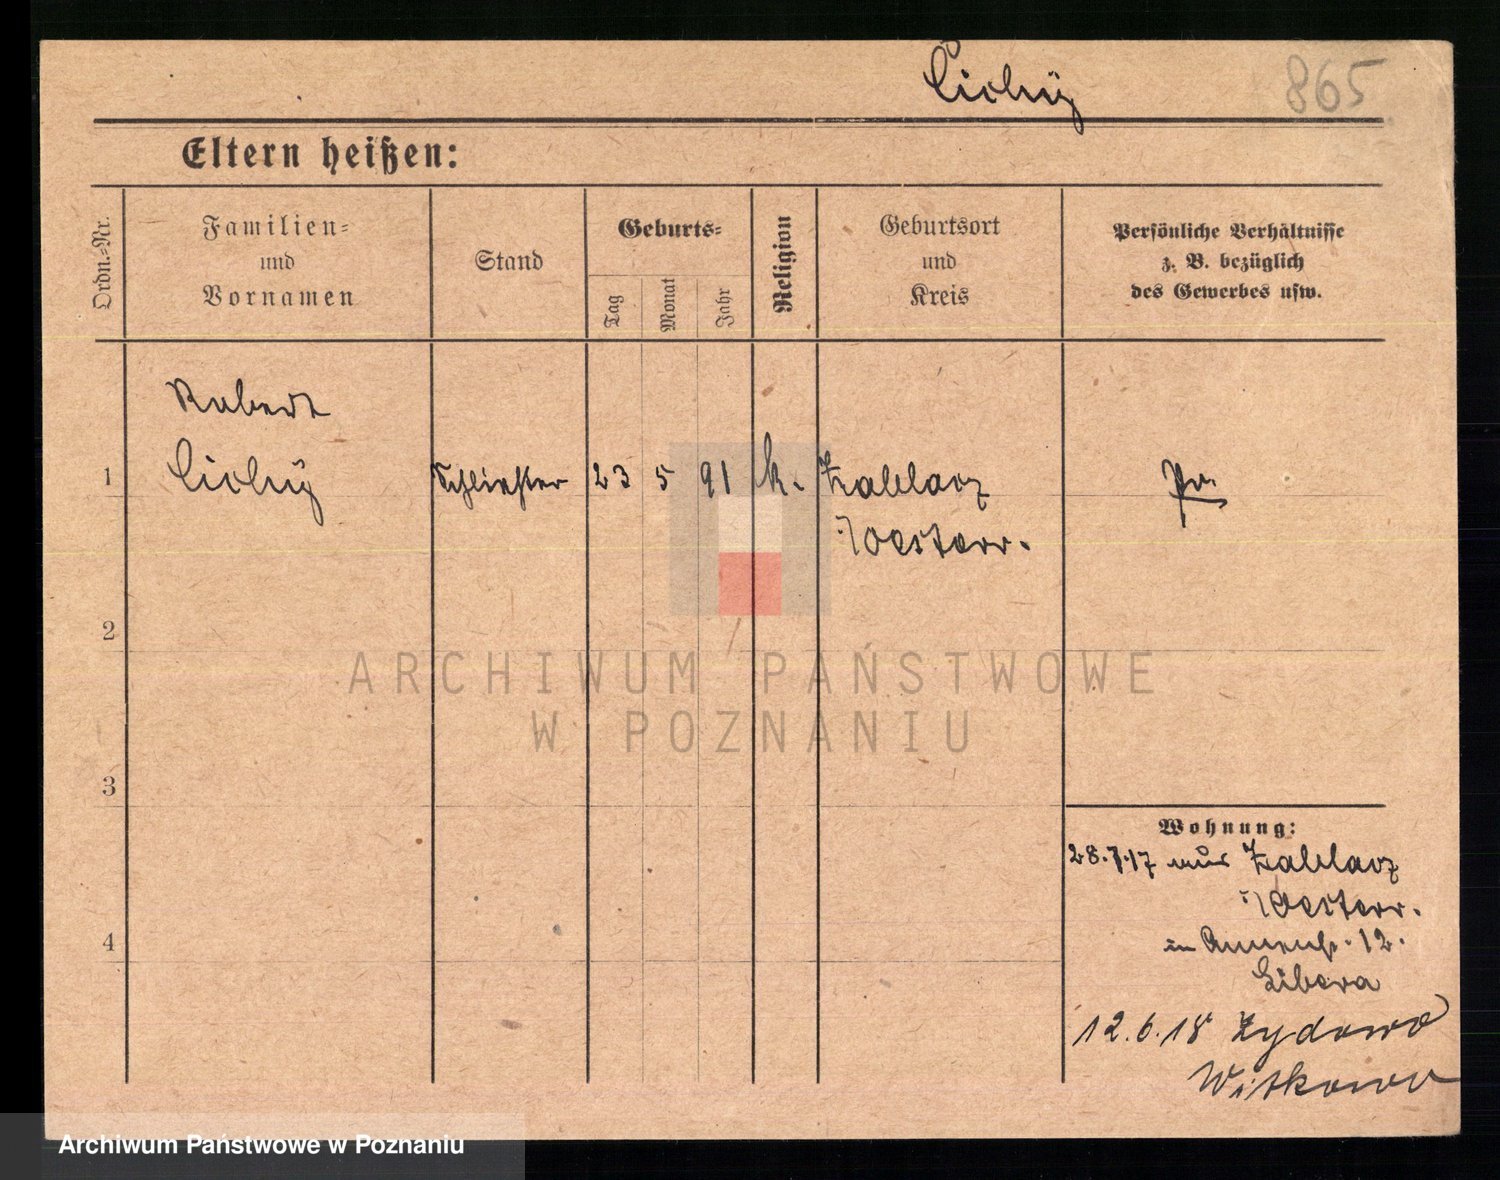 Cichy
865
Eltern heißen:
Ordn.-Nr.
Familien-
und
Vornamen
Stand
Geburts-
Tag
Monat
Jahr
Religion
Geburtsort
und
Kreis
Persönliche Verhältnisse
z. B. bezüglich
des Gewerbes usw.
Robert
1 Cichÿ 23 5 91 k. Zablacz
Oesterr.
Pr.
2
3
4
Wohnung:
28.7.17 aus Zablacz
Oesterr.
in Annenstr. 12.
Libera
12.6.18 Zydowo
Witkowo
ARCHIWUM PAŃSTWOWE
W POZNANIU
Archiwum Państwowe w Poznaniu